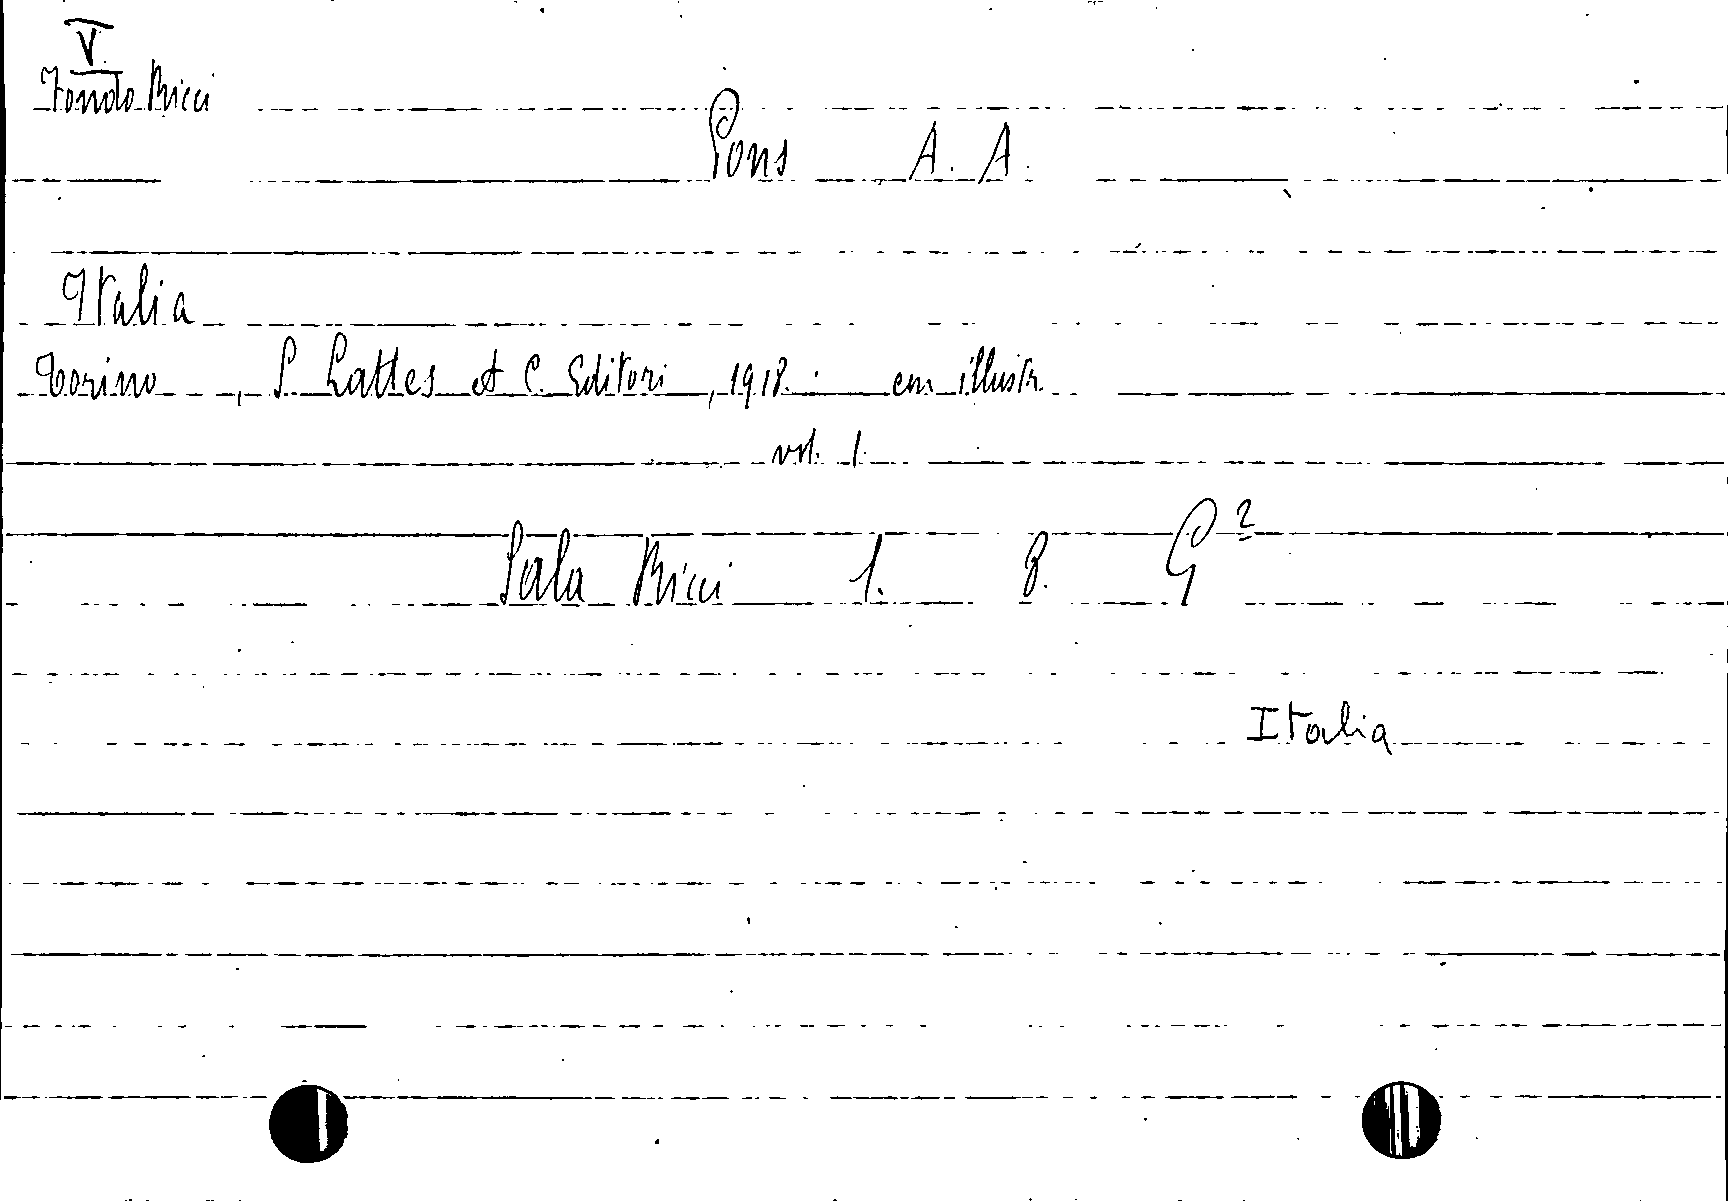 V.
Fondo Ricci
Pons A. A.
Italia
Torino, S. Lattes et C. Editori, 1918. con illustr.
vol. 1.
Sala Ricci 1. 8. G²
Italia